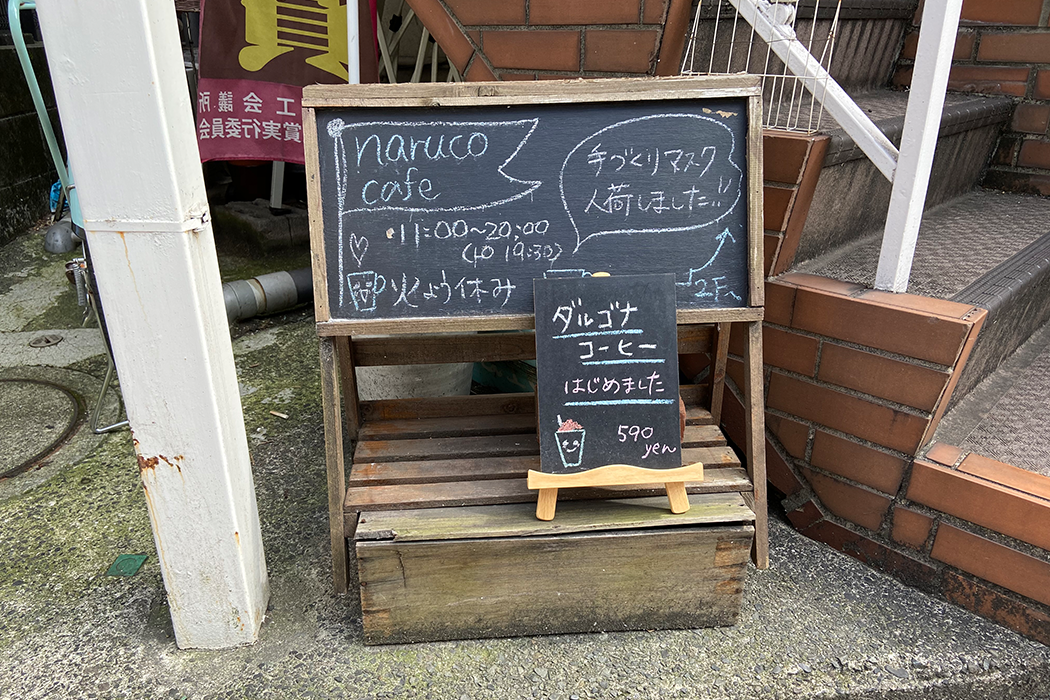 賞
工会議所
賞実行委員会
naruco
cafe
・11:00~20:00
(LO 19:30)
火よう休み
手づくりマスク
入荷しました!!
2Fへ
ダルゴナ
コーヒー
はじめました
590
yen